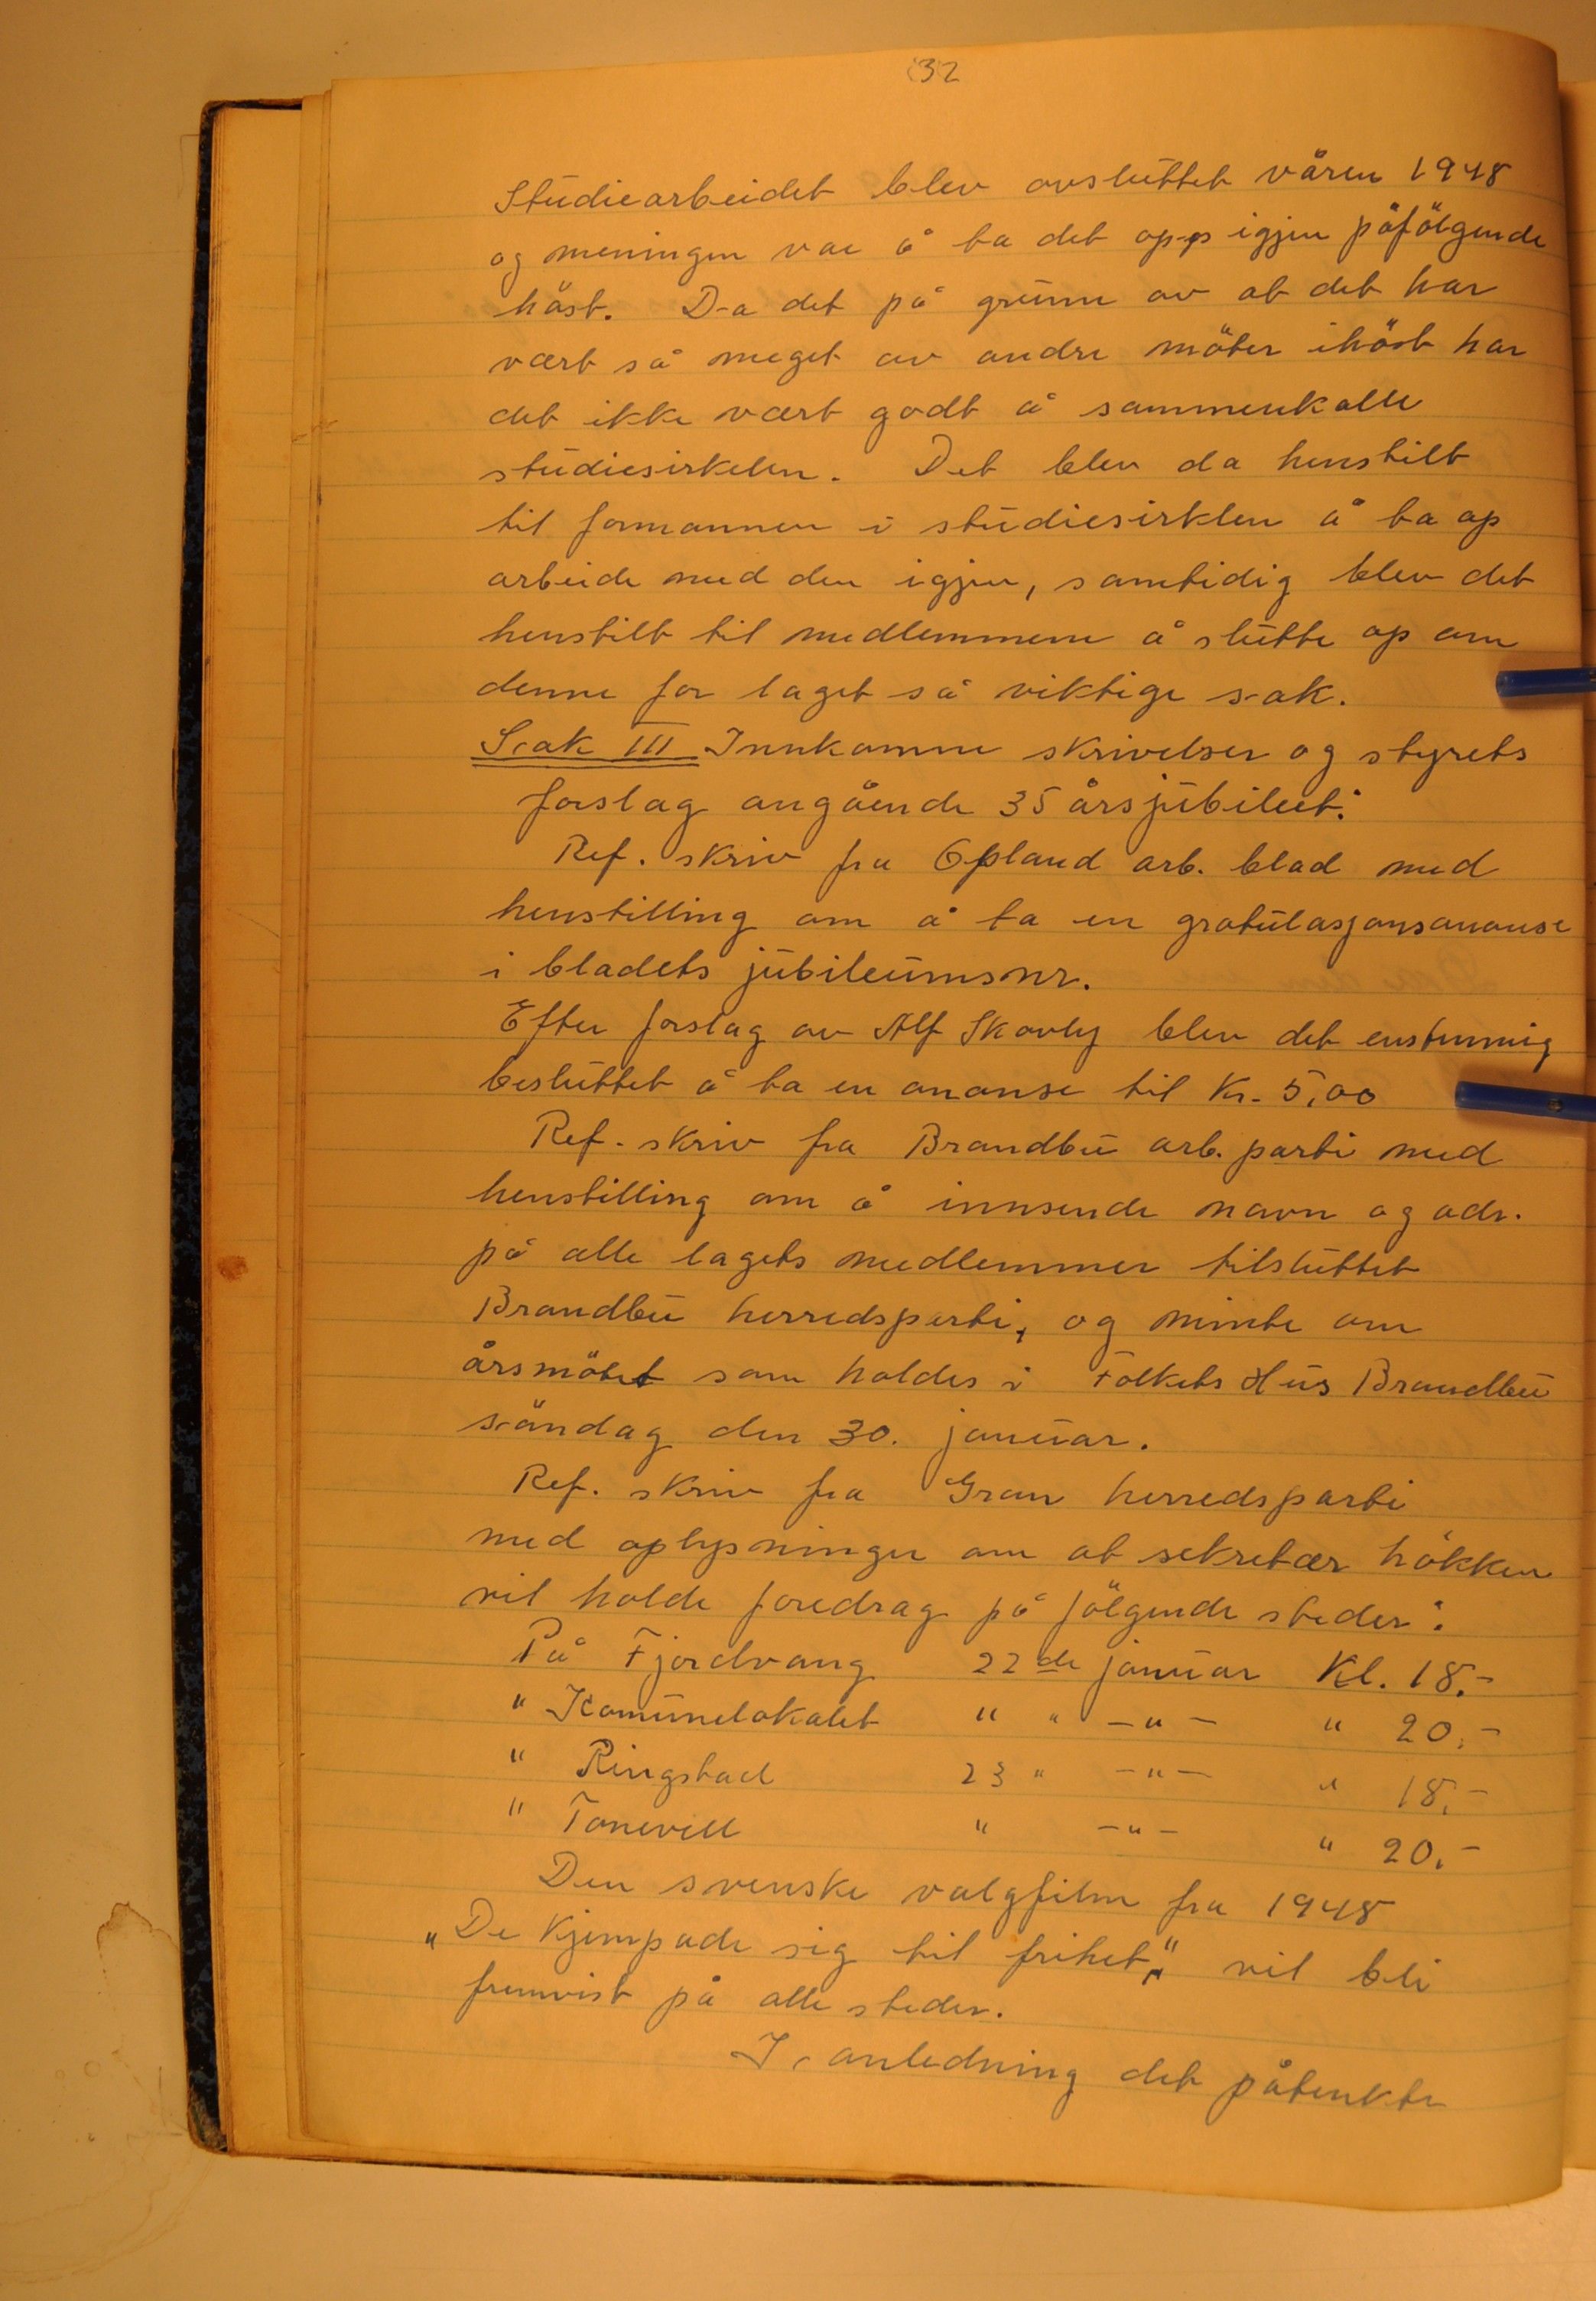 32
Studiearbeidet blev avsluttet våren 1948
og meningen var å ta det opp igjen påfölgende
höst. Da det på grunn av at det har
vært så meget av andre möter ihöst har
det ikke vært godt å sammenkalle
studiesirkelen. Det blev da henstilt
til formannen i studiesirklen å ta op
arbeide med den igjen, samtidig blev det
henstilt til medlemmene å slutte op om
denne for laget så viktige sak.
Sak III Innkomne skrivelser og styrets
forslag angående 35 årsjubileet:
Ref. skriv fra Opland arb. blad med
henstilling om å ta en gratulasjonsanonse
i bladets jubileumsnr.
Efter forslag av Alf Skovly blev det enstemmig
besluttet å ta en anonse til Kr. 5,00
Ref. skriv fra Brandbu arb. parti med
henstilling om å innsende navn og adr.
på alle lagets medlemmer tilsluttet
Brandbu herredsparti, og minte om
årsmötet som holdes i Folkets Hus Brandbu
söndag den 30. januar.
Ref. skriv fra Gran herredsparti
med oplysninger om at sekretær hökken
vil holde foredrag på fölgende steder:
På Fjordvang 22de januar Kl. 18.-
" Komunelokalet " " -"- " 20.-
" Ringstad 23 " -"- " 18.-
" Tonevell " -"- " 20.-
Den svenske valgfilm fra 1948
„De kjempade sig til frihet," vil bli
fremvist på alle steder.
I anledning det påtenkte